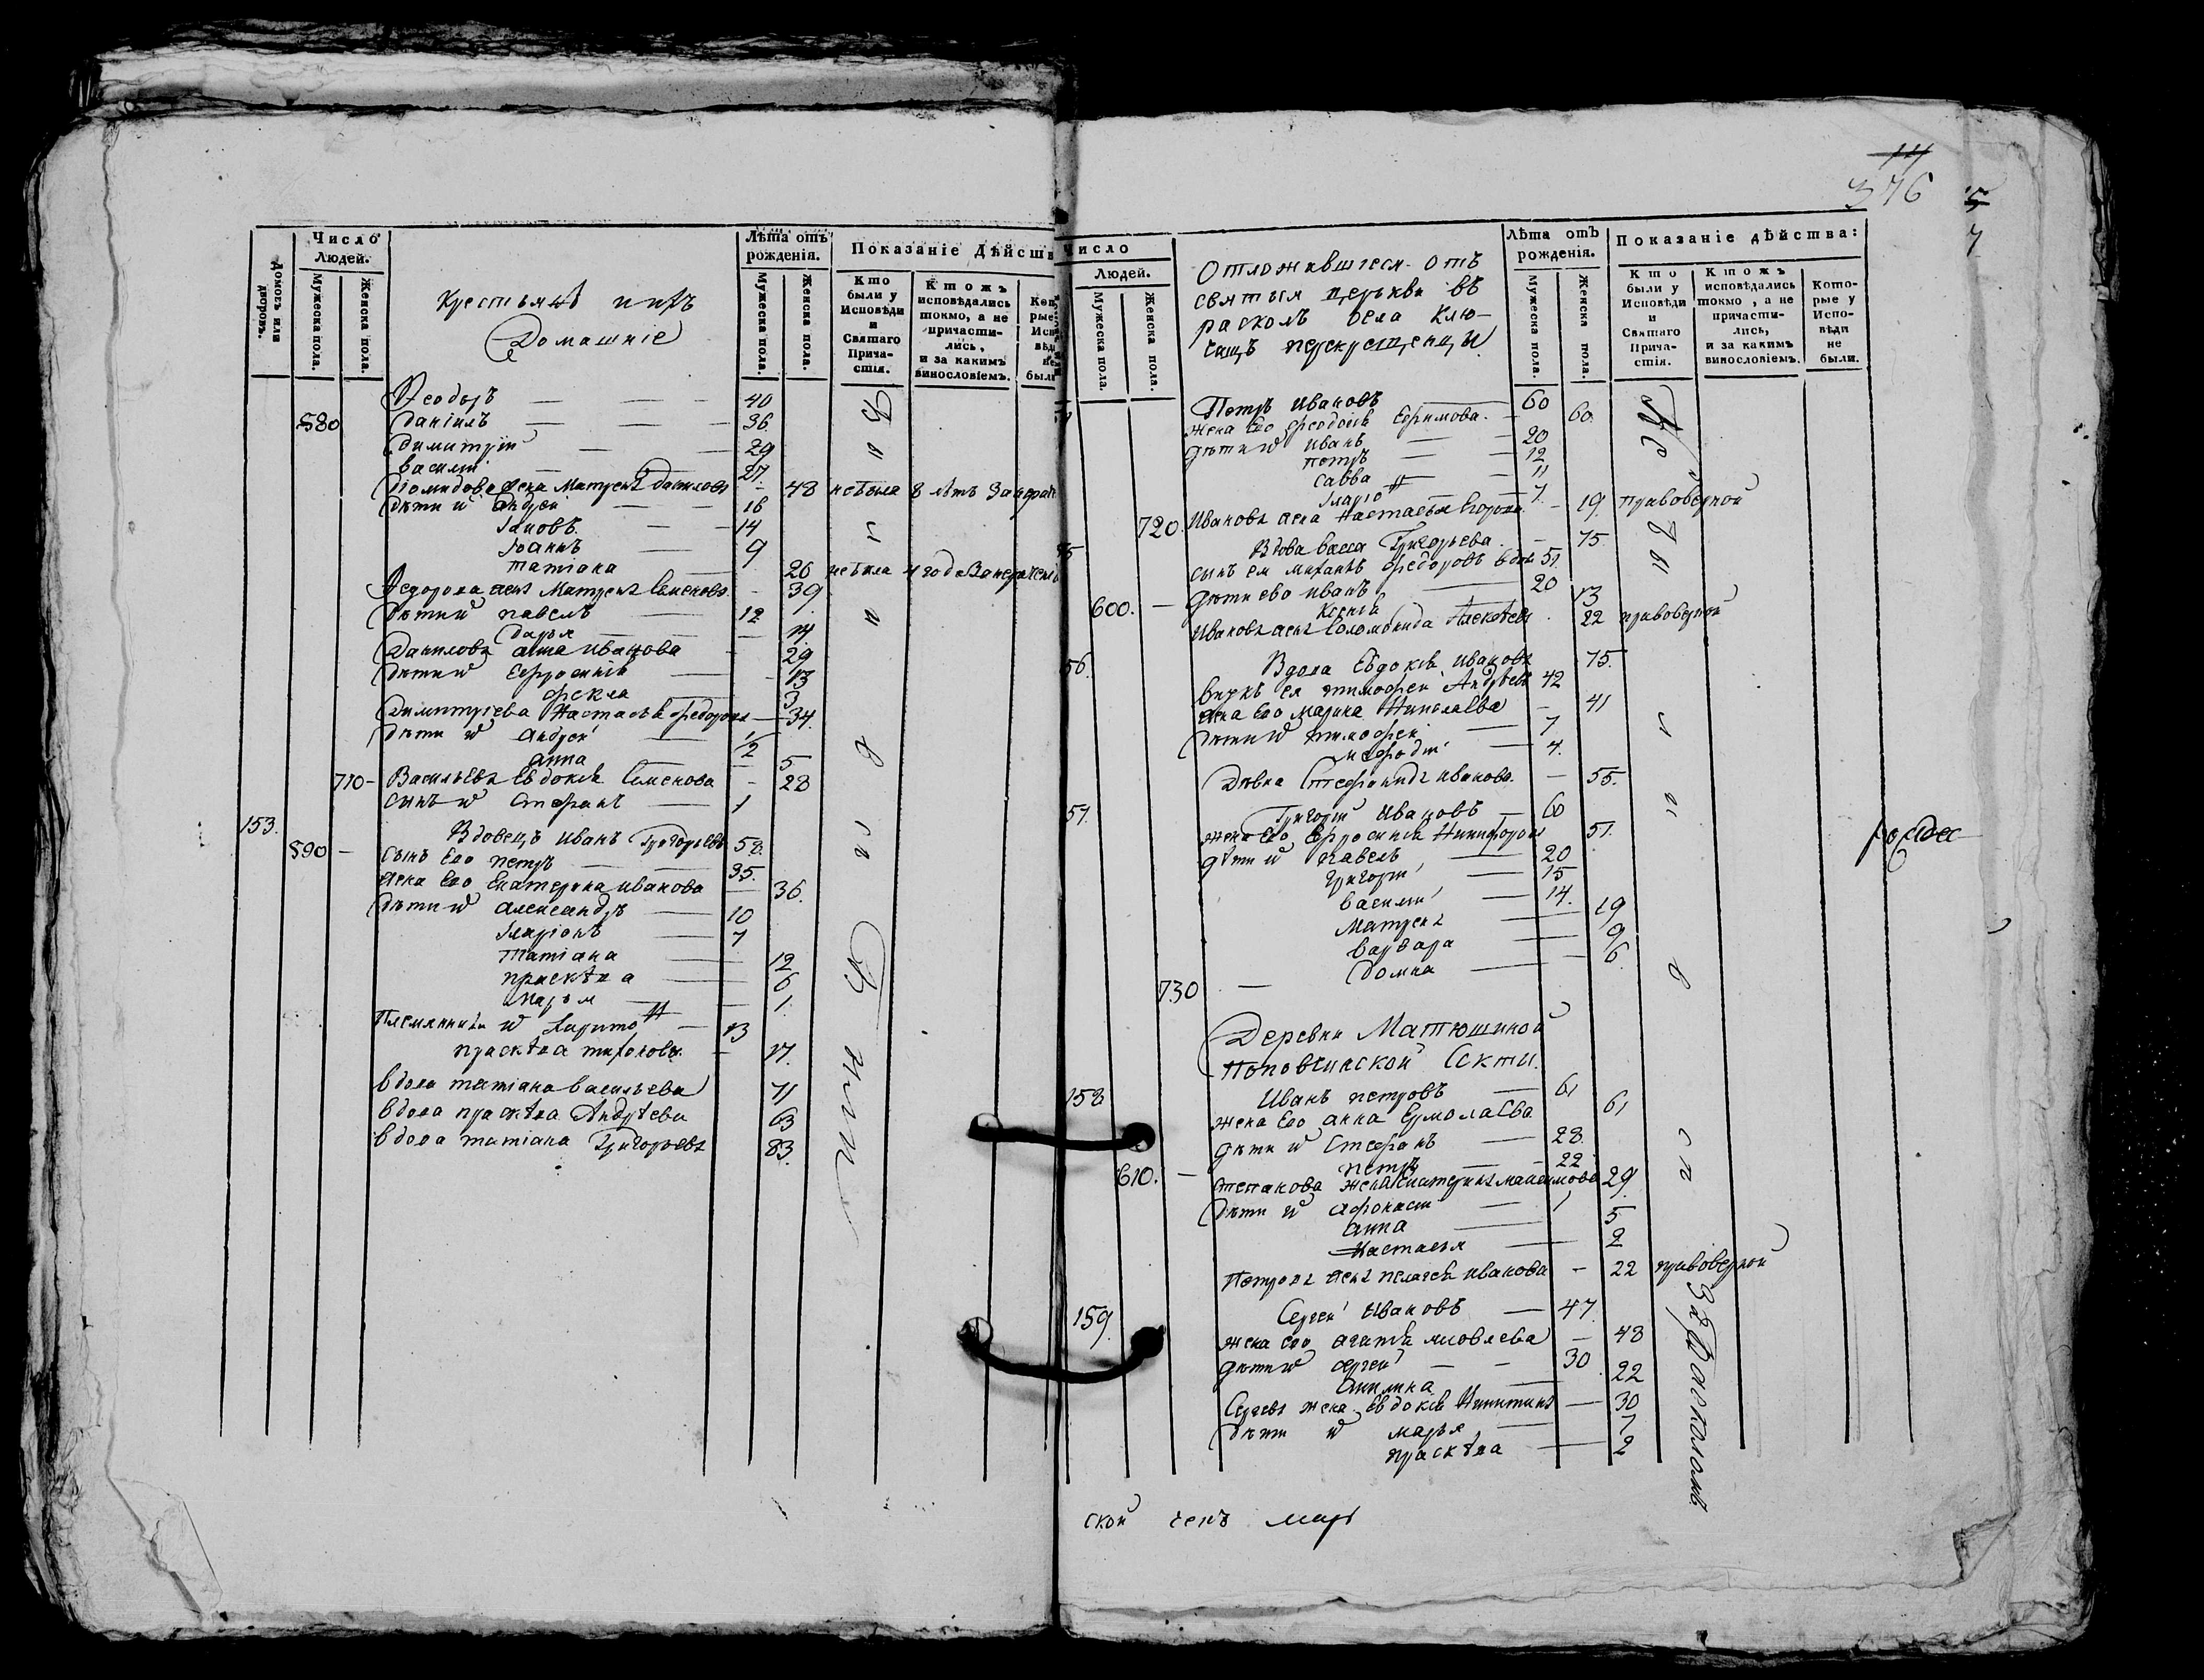 Число Людей.
Домовъ или дворовъ.
Мужеска пола.
Женска пола.
Крестьянѣ и ихъ
Домашніе
Лѣта отъ рожденія.
Мужеска пола.
Женска пола.
Показаніе Дѣйств
Кто были у Исповѣди и Святаго Прича-стія.
Ктожъ исповѣдались токмо, а не причасти-лись, и за какимъ винословіемъ.
Ѳеодоръ — — — 40
580 Даніилъ — — — 36
Димитрій — — 29
Василій — — 27
жена Матрена Данилова - 48 не была 8 лѣтъ
Дѣти и Андрей — — 16
Іаковъ — — 14
Іоаннъ — 9
Татіана — 26 не была 4 года
Ѳедорова жена Матрена Семенова - 39
Дѣти и Павелъ — 12
Дарья — — 14
Данилова Анна Иванова - 29
Дѣти и Ефросинія — - 13
Фекла — 3
Димитріева Настасья Федорова — 34
Дѣти и Андрей — 1/2
Анна — — 5
710 - Васильева Евдокія Семенова - 28
сынъ и Стефанъ — 1
153. Вдовецъ Иванъ Григорьевъ 58.
590 — сынъ его Петръ — 35.
жена его Екатерина Иванова — 36.
дѣти и Александръ — 10
Іларіонъ — 7
Татіана — 12
Праскѣва — 6
Марья — — 1.
Племянники и Харито — 13
Праскѣва Тихонова — 17.
вдова Татіана Васильева 71
вдова Праскѣва Андрѣева 63
вдова Татіана Григорьева 83.
14
376
5
7
Число Людей.
Мужеска пола.
Женска пола.
Отложившіеся отъ
святыя церькви въ
расколъ села Клю-
чищъ перекрещенцы
Лѣта отъ рожденія.
Мужеска пола.
Женска пола.
Показаніе дѣйства:
Кто были у Исповѣди и Святаго Прича-стія.
Ктожъ исповѣдались токмо, а не причасти-лись, и за какимъ винословіемъ.
Кото-рые у Испо-вѣди не были.
Петръ Ивановъ — 60
жена его Феодосія Ефимова. - 60.
дѣти и Иванъ — — 20
Петръ — — 12
Савва — — 11
Іларіо — — 7.
720. Иванова жена Настасья Егорова - 19 правоверной
Вдова Васса Григорьева. - 75.
сынъ ея Михаилъ Федоровъ вдов 51.
600. — дѣти ево Иванъ — 20
Ксенія — 13
Иванова жена Соломонида Алексѣева . 22 правоверной
56. Вдова Евдокія Иванова 75.
внукъ ея Тимофей Андрѣевъ 42
жена его Марина Николаева - 41
Дѣти и Тимофей — 7
Мефодій — 4.
Дѣвка Стефанида Иванова. — 55.
57. Григорій Ивановъ — 60
жена его Ефросинія Никифорова 51.
дѣти и Павелъ — 20
Григорій — 15
Василій — 14.
Матрена — 19
Варвара — 9
730 — Домна — - 6.
Деревни Матюшиной
Поповчинской Секты.
158 Иванъ Петровъ — 61
жена его Анна Ермолаева 61
дѣти и Стефанъ — 28.
610. — Петръ — - 22
Степанова жена Екатерина Максимова 29
Дѣти и Афонасій — 1
Анна — 5
Настасья — 2
Петрова жена Пелагея Иванова - 22 правоверной
159. Сергей Ивановъ — 47
жена его Агатія Яковлева — 48
дѣти и Сергей — - 30
Акилина — 22
Сергева жена Евдокія Никитина — 30
Дѣти и Марья — 7
Праскѣва — 2
Не
были
за Расколомъ
ской